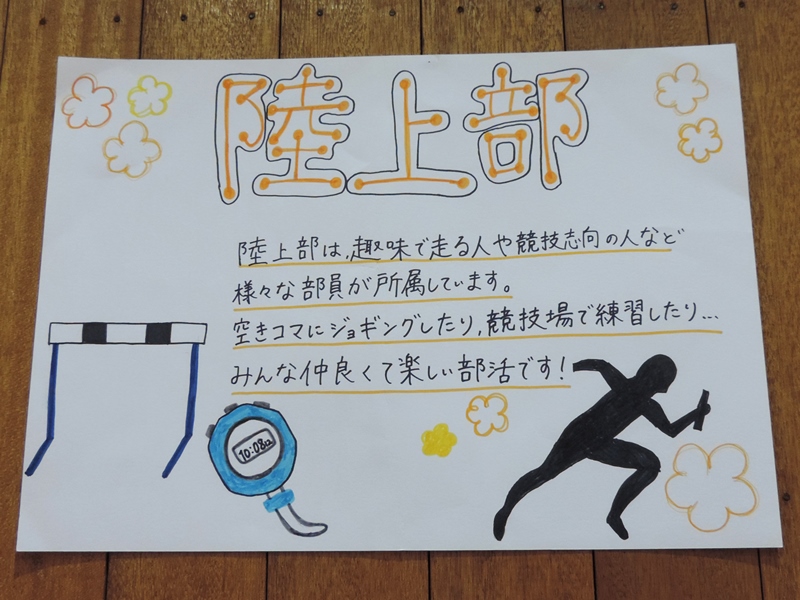 陸上部
陸上部は、趣味で走る人や競技志向の人など
様々な部員が所属しています。
空きコマにジョギングしたり、競技場で練習したり…
みんな仲良くて楽しい部活です!
10:08